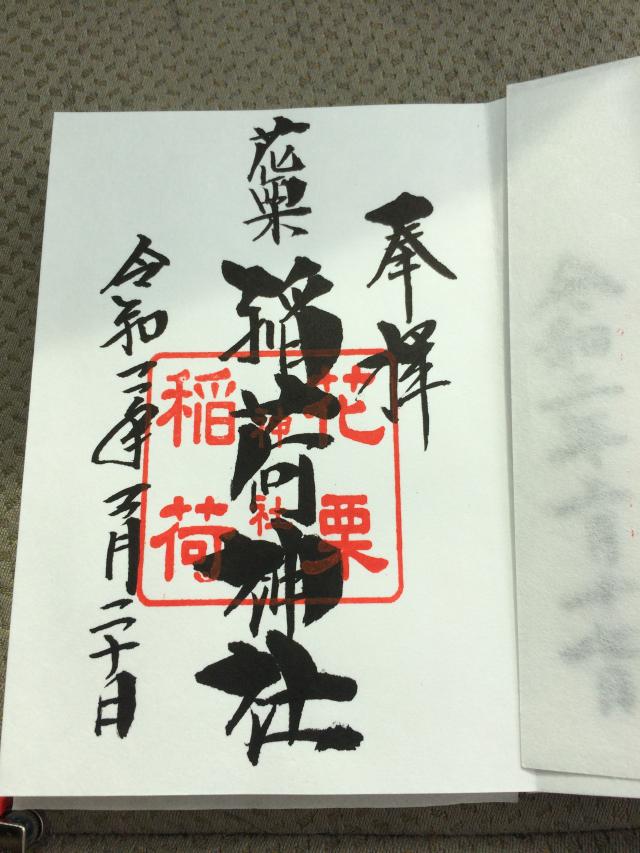 奉拝
花栗
稲荷神社
令和三年五月二十日
花栗
神社
稲荷